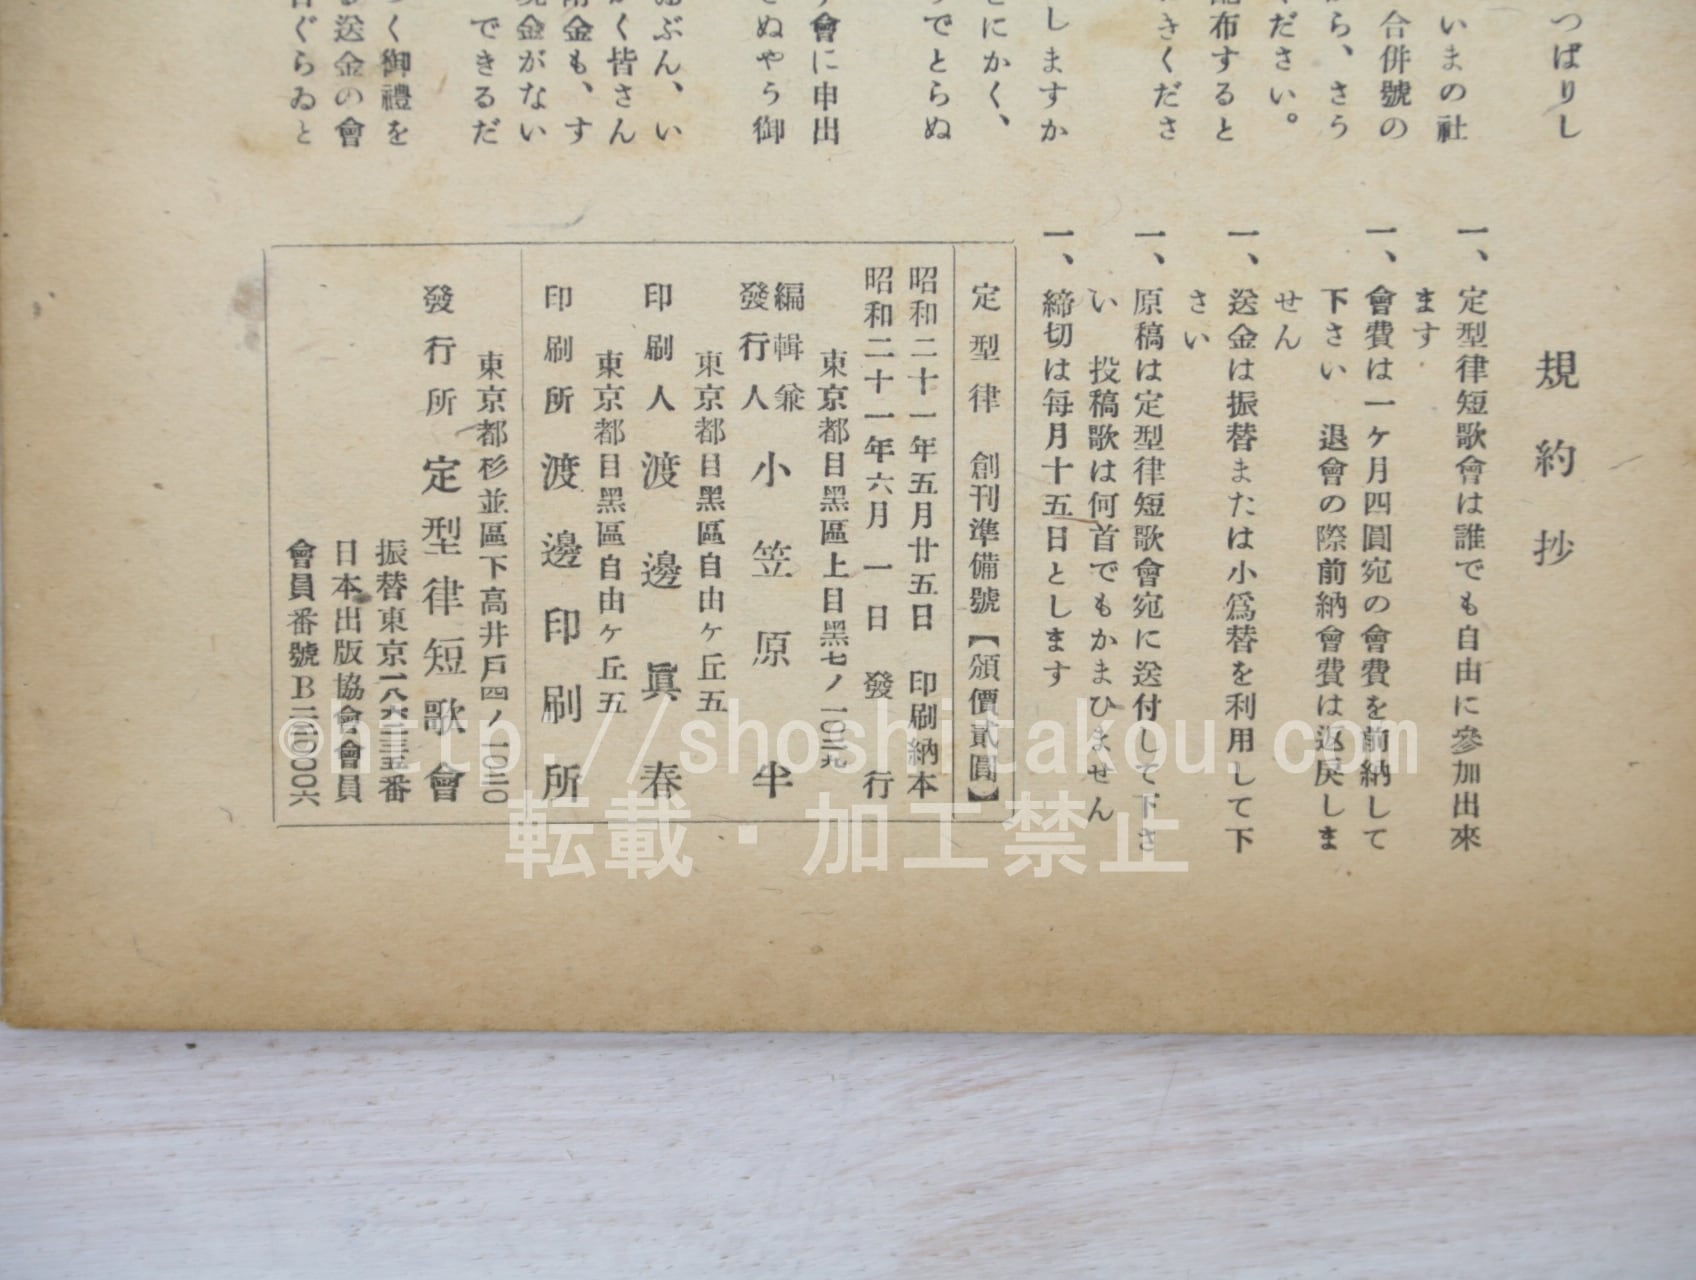 つぱりし
いまの社
合併號の
ら、さう
ださい。
配布すると
きくださ
しますか
にかく、
でとらぬ
會に申出
ぬやう御
ゐぶん、い
く皆さん
金も、す
金がない
できるだ
く御禮を
送金の會
ぐらゐと
規約抄
一、定型律短歌會は誰でも自由に參加出來
ます
一、會費は一ケ月四圓宛の會費を前納して
下さい　退會の際前納會費は返戻しま
せん
一、送金は振替または小爲替を利用して下
さい
一、原稿は定型律短歌會宛に送付して下さ
い　投稿歌は何首でもかまひません
一、締切は毎月十五日とします
定型律　創刊準備號【頒價貳圓】
昭和二十一年五月廿五日　印刷納本
昭和二十一年六月一日　發行
東京都目黑區上目黑七ノ一〇二九
編輯兼
發行人　小笠原半
東京都目黑區自由ケ丘五
印刷人　渡邊眞春
東京都目黑區自由ケ丘五
印刷所　渡邊印刷所
東京都杉並區下高井戸四ノ一〇二〇
發行所　定型律短歌會
振替東京一八六三三五番
日本出版協會會員
會員番號B二一〇〇〇六
©http://shoshitakou.com
転載・加工禁止